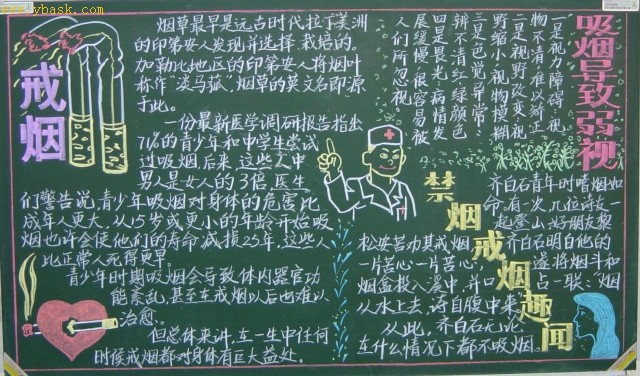 戒烟
烟草最早是远古时代拉丁美洲
的印第安人发现并选择、栽培的。
加勒比地区的印第安人将烟叶
称作“淡马菰”,烟草的英文名即源
于此。
一份最新医学调研报告指出
71%的青少年和中学生尝试
过吸烟,后来,这些人中
男人是女人的3倍,医生
们警告说,青少年吸烟对身体的危害比
成年人更大,从15岁或更小的年龄开始吸
烟也许会使他们的寿命减损25年,这些人
比正常人死得更早。
青少年时期吸烟会导致体内器官功
能紊乱,甚至在戒烟以后也难以
治愈。
但总体来讲,在一生中任何
时候戒烟都对身体有巨大益处。
吸烟导致弱视
一是视力障碍,视
物不清难以矫正
二是视野改变,视
野缩小,视物模糊
三是色觉异常:
辨不清红绿颜色
四是畏光,病情发
展缓慢,很容易被
人们所忽视
禁烟戒烟趣闻
齐白石青年时嗜烟如
命。有一次,几位诗友一
起登山,好朋友黎
松安苦力其戒烟,齐白石明白他的
一片苦心,遂将烟斗和
烟盒投入溪中,并口占一联:“烟
从水上去,诗自腹中来”
从此,齐白石无论
在什么情况下都不吸烟。